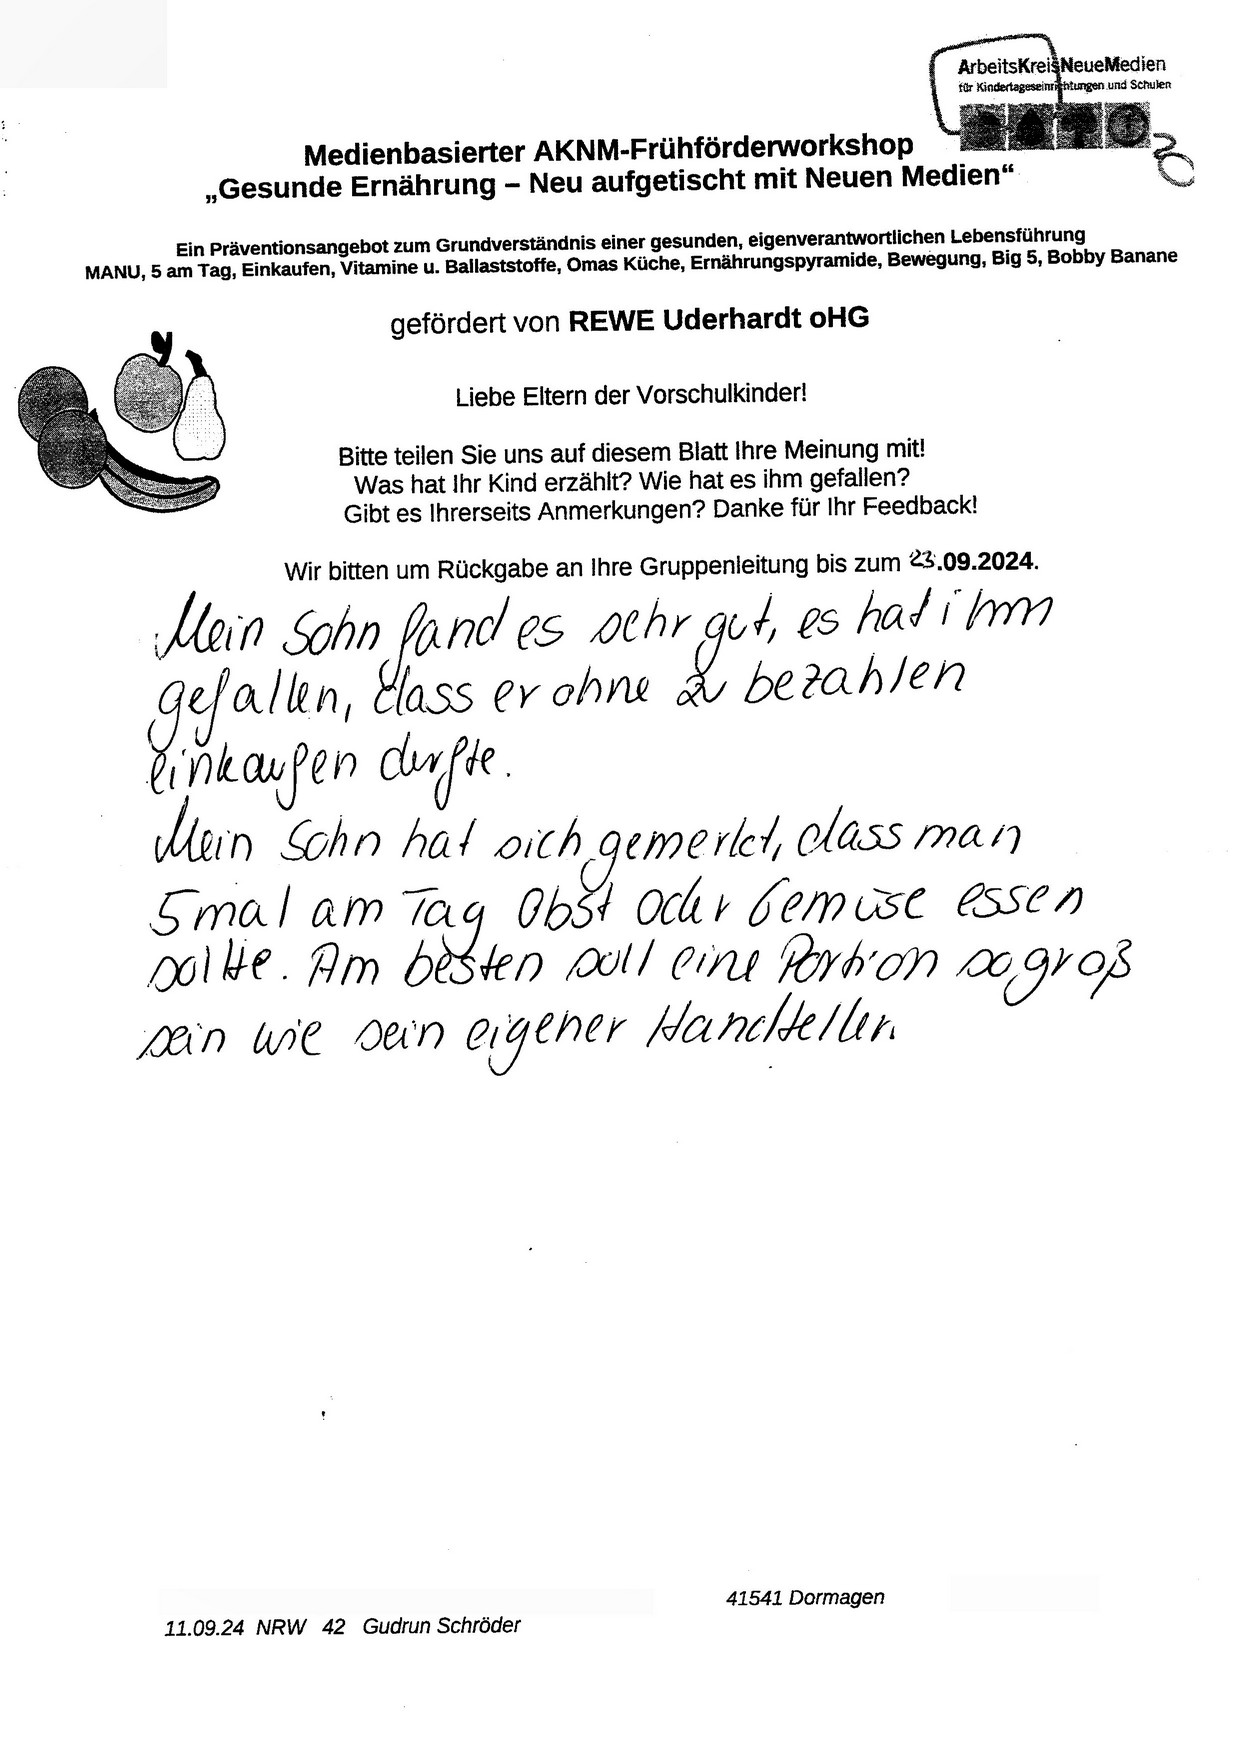 ArbeitsKreisNeueMedien
für Kindertageseinrichtungen und Schulen
Medienbasierter AKNM-Frühförderworkshop
„Gesunde Ernährung – Neu aufgetischt mit Neuen Medien“
Ein Präventionsangebot zum Grundverständnis einer gesunden, eigenverantwortlichen Lebensführung
MANU, 5 am Tag, Einkaufen, Vitamine u. Ballaststoffe, Omas Küche, Ernährungspyramide, Bewegung, Big 5, Bobby Banane
gefördert von REWE Uderhardt oHG
Liebe Eltern der Vorschulkinder!
Bitte teilen Sie uns auf diesem Blatt Ihre Meinung mit!
Was hat Ihr Kind erzählt? Wie hat es ihm gefallen?
Gibt es Ihrerseits Anmerkungen? Danke für Ihr Feedback!
Wir bitten um Rückgabe an Ihre Gruppenleitung bis zum 23.09.2024.
Mein Sohn fand es sehr gut, es hat ihm
gefallen, dass er ohne zu bezahlen
einkaufen durfte.
Mein Sohn hat sich gemerkt, dass man
5mal am Tag Obst oder Gemüse essen
sollte. Am besten soll eine Portion so groß
sein wie sein eigener Handteller.
41541 Dormagen
11.09.24 NRW 42 Gudrun Schröder